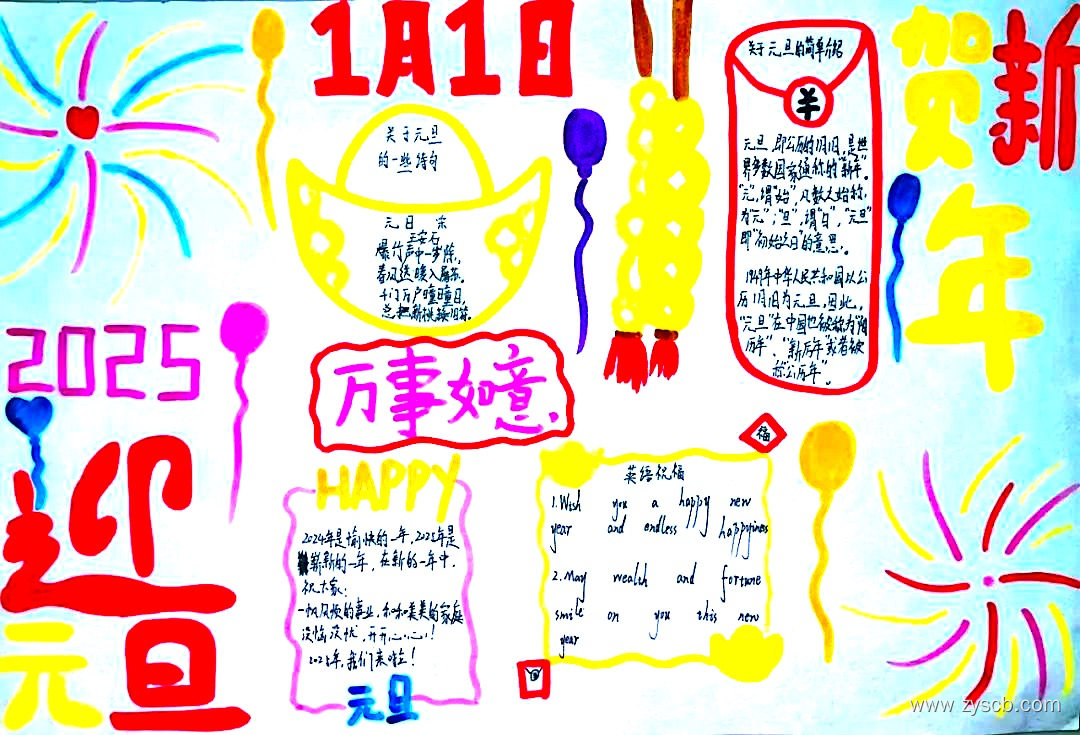 1月1日
贺新
年
2025
迎
元旦
关于元旦
的一些诗句
元日 宋
王安石
爆竹声中一岁除,
春风送暖入屠苏。
千门万户曈曈日,
总把新桃换旧符。
万事如意
关于元旦的简单介绍
羊
元旦,即公历的1月1日,是世
界多数国家通称的"新年"。
"元",谓"始",凡数之始称
为"元";"旦",谓"日","元旦"
即"初始之日"的意思。
1949年中华人民共和国以公
历1月1日为元旦,因此,
"元旦"在中国也被称为"阳
历年"、"新历年"或者被
称"公历年"。
福
HAPPY
2024年是愉快的一年,2025年是
崭新的一年,在新的一年中,
祝大家:
一帆风顺的事业,和和美美的家庭
没恼没忧,开开心心!
2025年,我们来啦!
元旦
英语祝福
1.Wish you a happy new
year and endless happyiness
2.May wealth and fortune
smile on you this new
year
www.zyscb.com